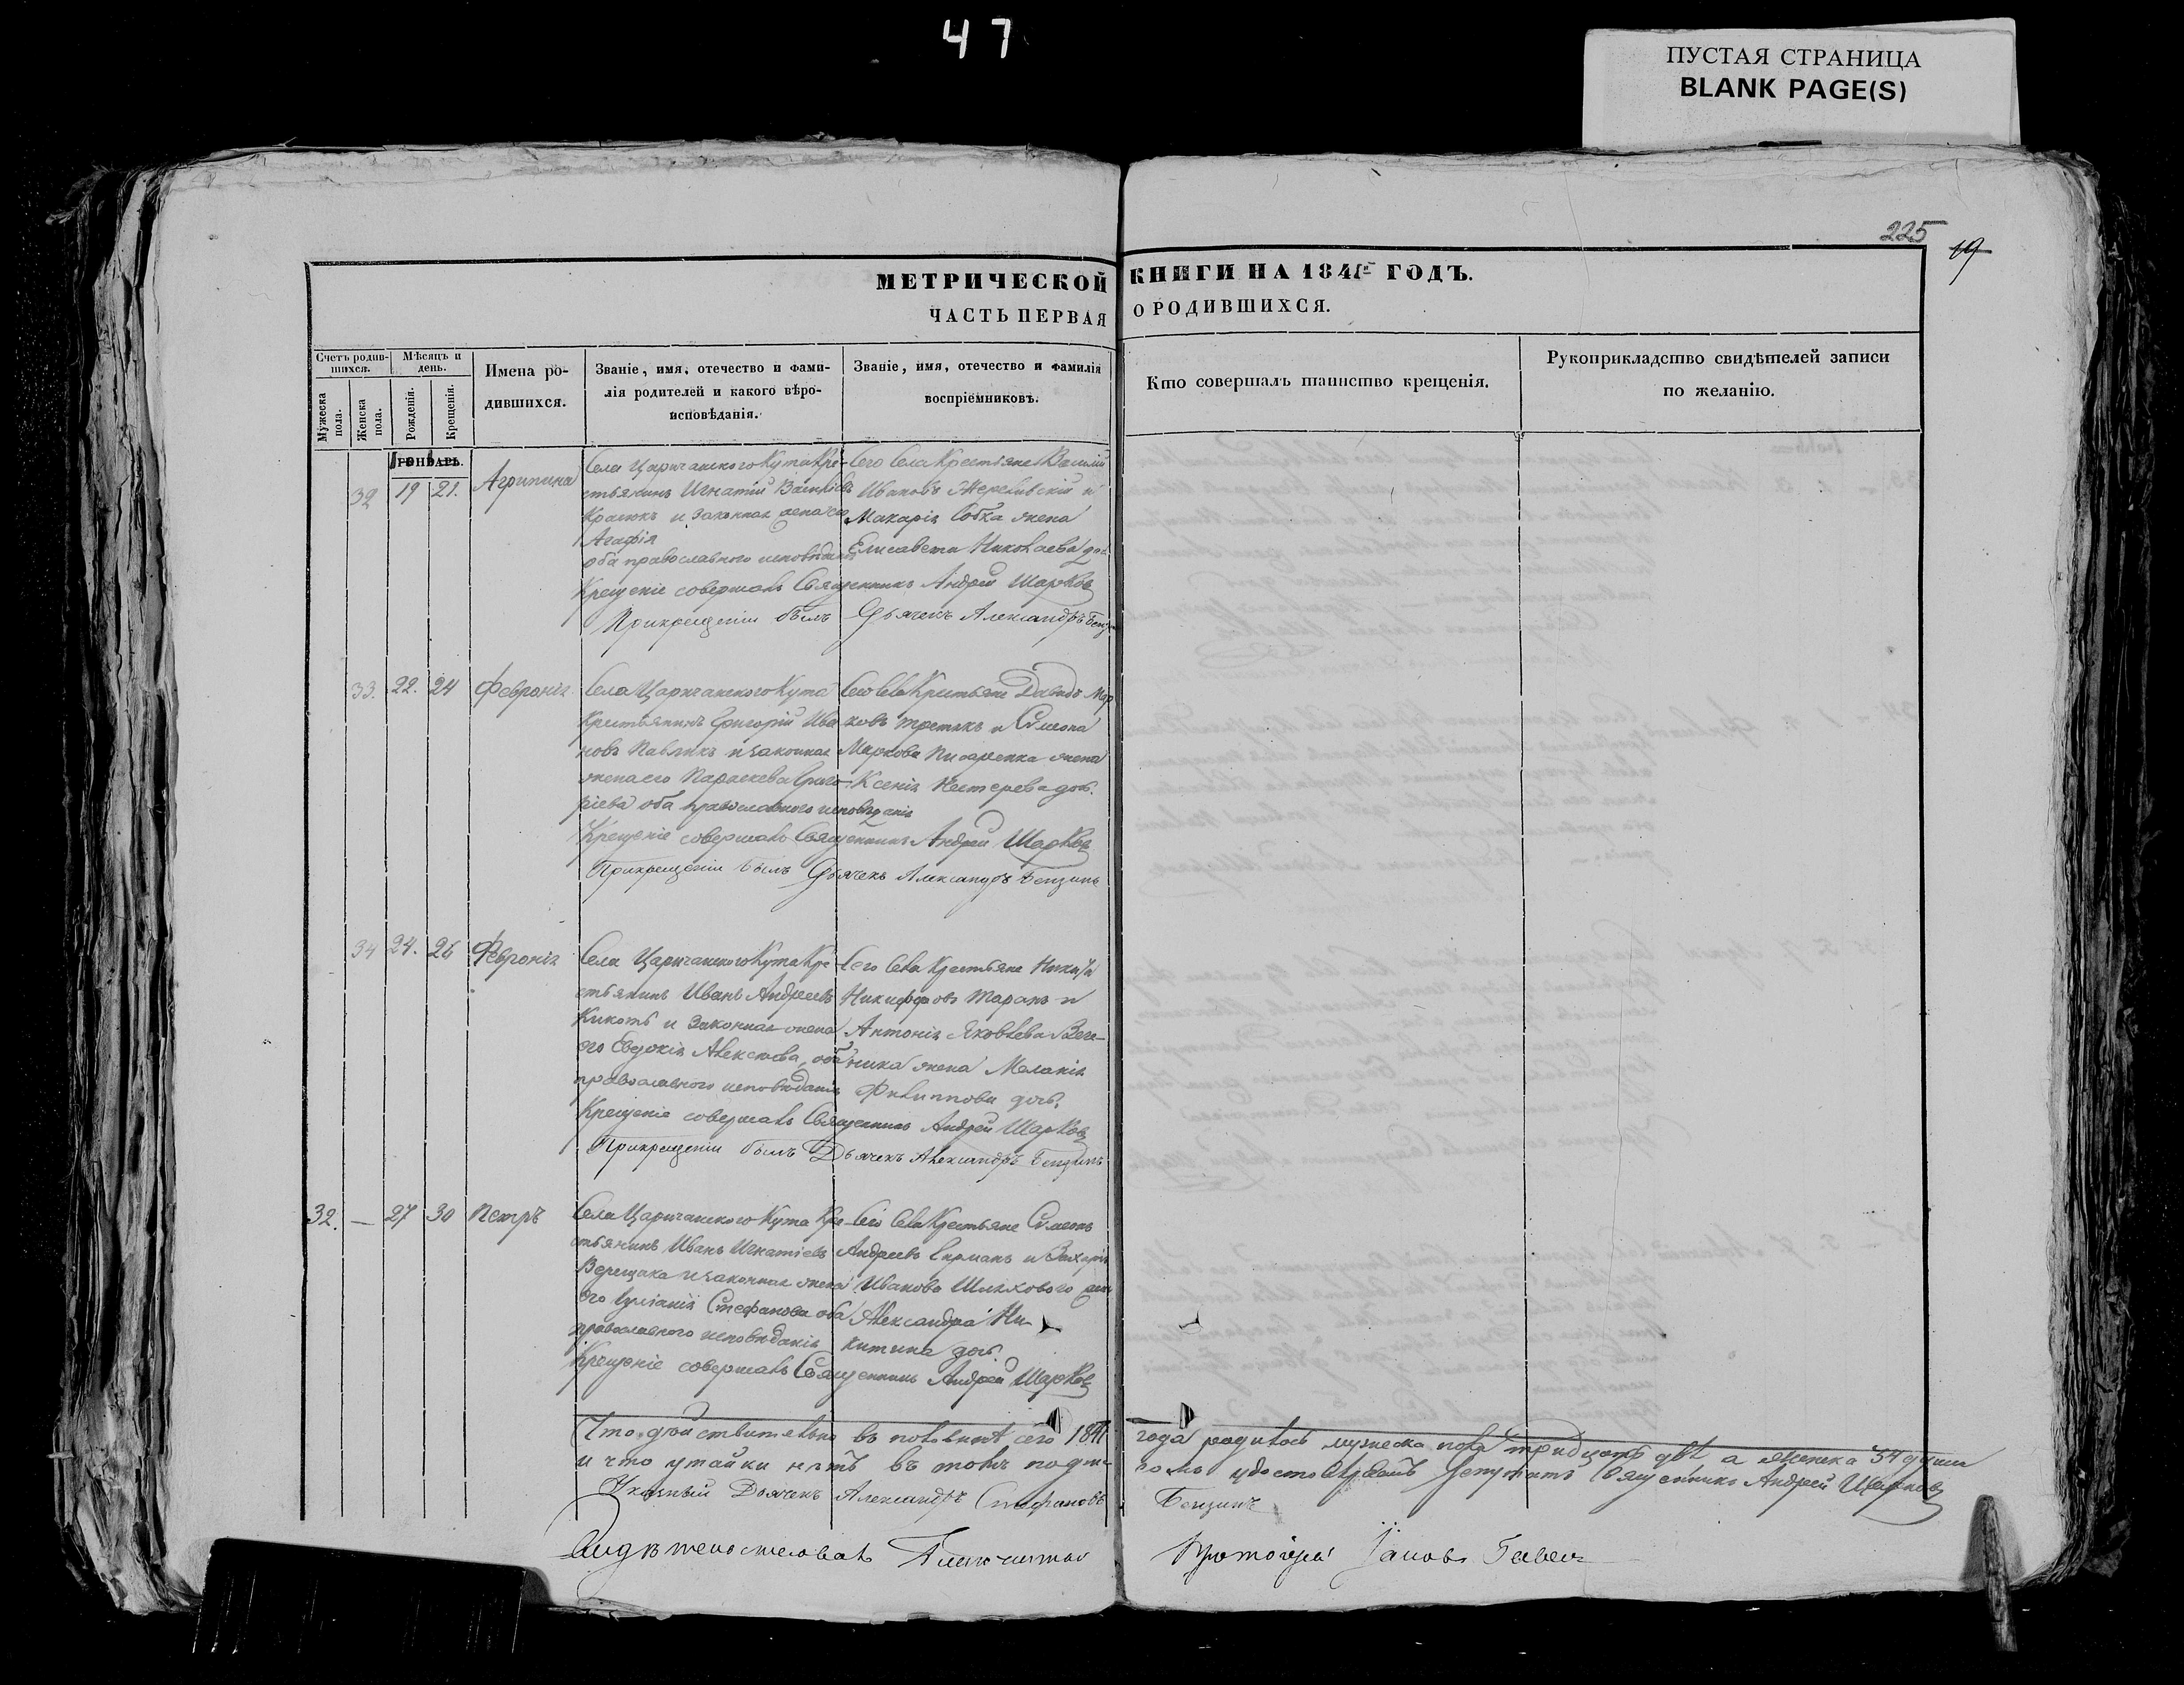 47
ПУСТАЯ СТРАНИЦА
BLANK PAGE(S)
225
19
МЕТРИЧЕСКОЙ КНИГИ НА 1841 ГОДЪ.
ЧАСТЬ ПЕРВАЯ О РОДИВШИХСЯ.
Счетъ родившихся.
Мужеска пола.
Женска пола.
Мѣсяцъ и день.
Рожденія.
Крещенія.
Имена родившихся.
Званіе, имя, отечество и фамилія родителей и какого вѣроисповѣданія.
Званіе, имя, отечество и фамилія воспріемниковъ.
Кто совершалъ таинство крещенія.
Рукоприкладство свидѣтелей записи по желанію.
32 19 21. Агрипина
Села Царичанскаго Кута Кре-
стьянинъ Игнатій
и законная жена его
Агафія
оба православнаго исповѣданія
Сего Села Крестьяне Василій
Ивановъ и
Макарія жена
Елисавета Николаева доч.
Крещеніе совершалъ Священникъ Андрей Шарковъ
При крещеніи былъ Дьячекъ Александръ
33. 22. 24 Февронія
Села Царичанскаго Кута
Крестьянинъ Григорій Ива
новъ Павликъ и законная
жена его Параскева Григо-
ріева оба православнаго исповѣданія
Сего Села Крестьяне Давидъ Мар
ковъ Третякъ и Симеона
Маркова Писаренка жена
Ксенія Нестерева доч.
Крещеніе совершалъ Священникъ Андрей Шарковъ
При крещеніи былъ Дьячекъ Александръ Бензинъ
34 24. 26 Февронія
Села Царичанскаго Кута Кре-
стьянинъ Иванъ Андреевъ
Кикоть и законная жена
его Евдокія Алексѣева, оба
православнаго исповѣданія
Сего Села Крестьяне Никита
Никифоровъ Таранъ и
Антонія Яковлева
жена Меланія
Филиппова доч.
Крещеніе совершалъ Священникъ Андрей Шарковъ
При крещеніи былъ Дьячекъ Александръ Бензинъ
32. — 27 30 Петръ
Села Царичанскаго Кута Кре-
стьянинъ Иванъ Игнатіевъ
Верещака и законная жена
его Іуліанія Стефанова оба
православнаго исповѣданія
Сего Села Крестьяне Симеонъ
Андреевъ и Захарія
Иванова Шляхового
Александра Ни-
китина доч.
Крещеніе совершалъ Священникъ Андрей Шарковъ
Что дѣйствительно въ половинѣ сего 1841 года родилось мужеска пола тридцать двѣ а женска 34 души
и что утайки нѣтъ въ томъ удостовѣряютъ Депутатъ Священникъ Андрей Шарковъ
Указный Дьячекъ Александръ Стефановъ Бензинъ
Протоіерей Іаковъ